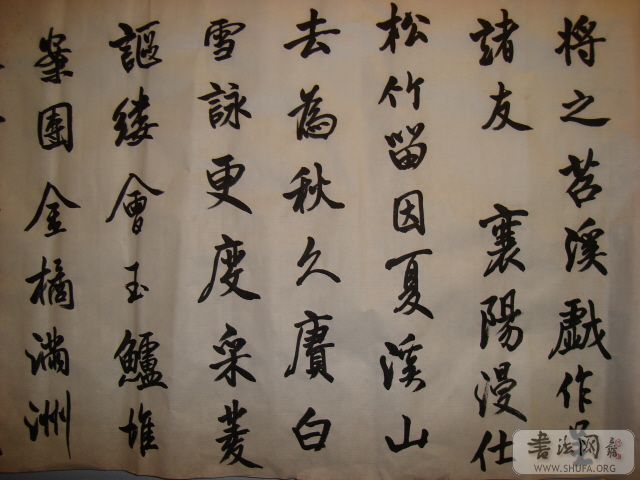 将之苕溪戯作呈
諸友 襄陽漫仕
松竹留因夏溪山
去為秋久賡白
雪詠更度采菱
謳縷會玉鱸堆
案團金橘满洲
書法网
WWW.SHUFA.ORG